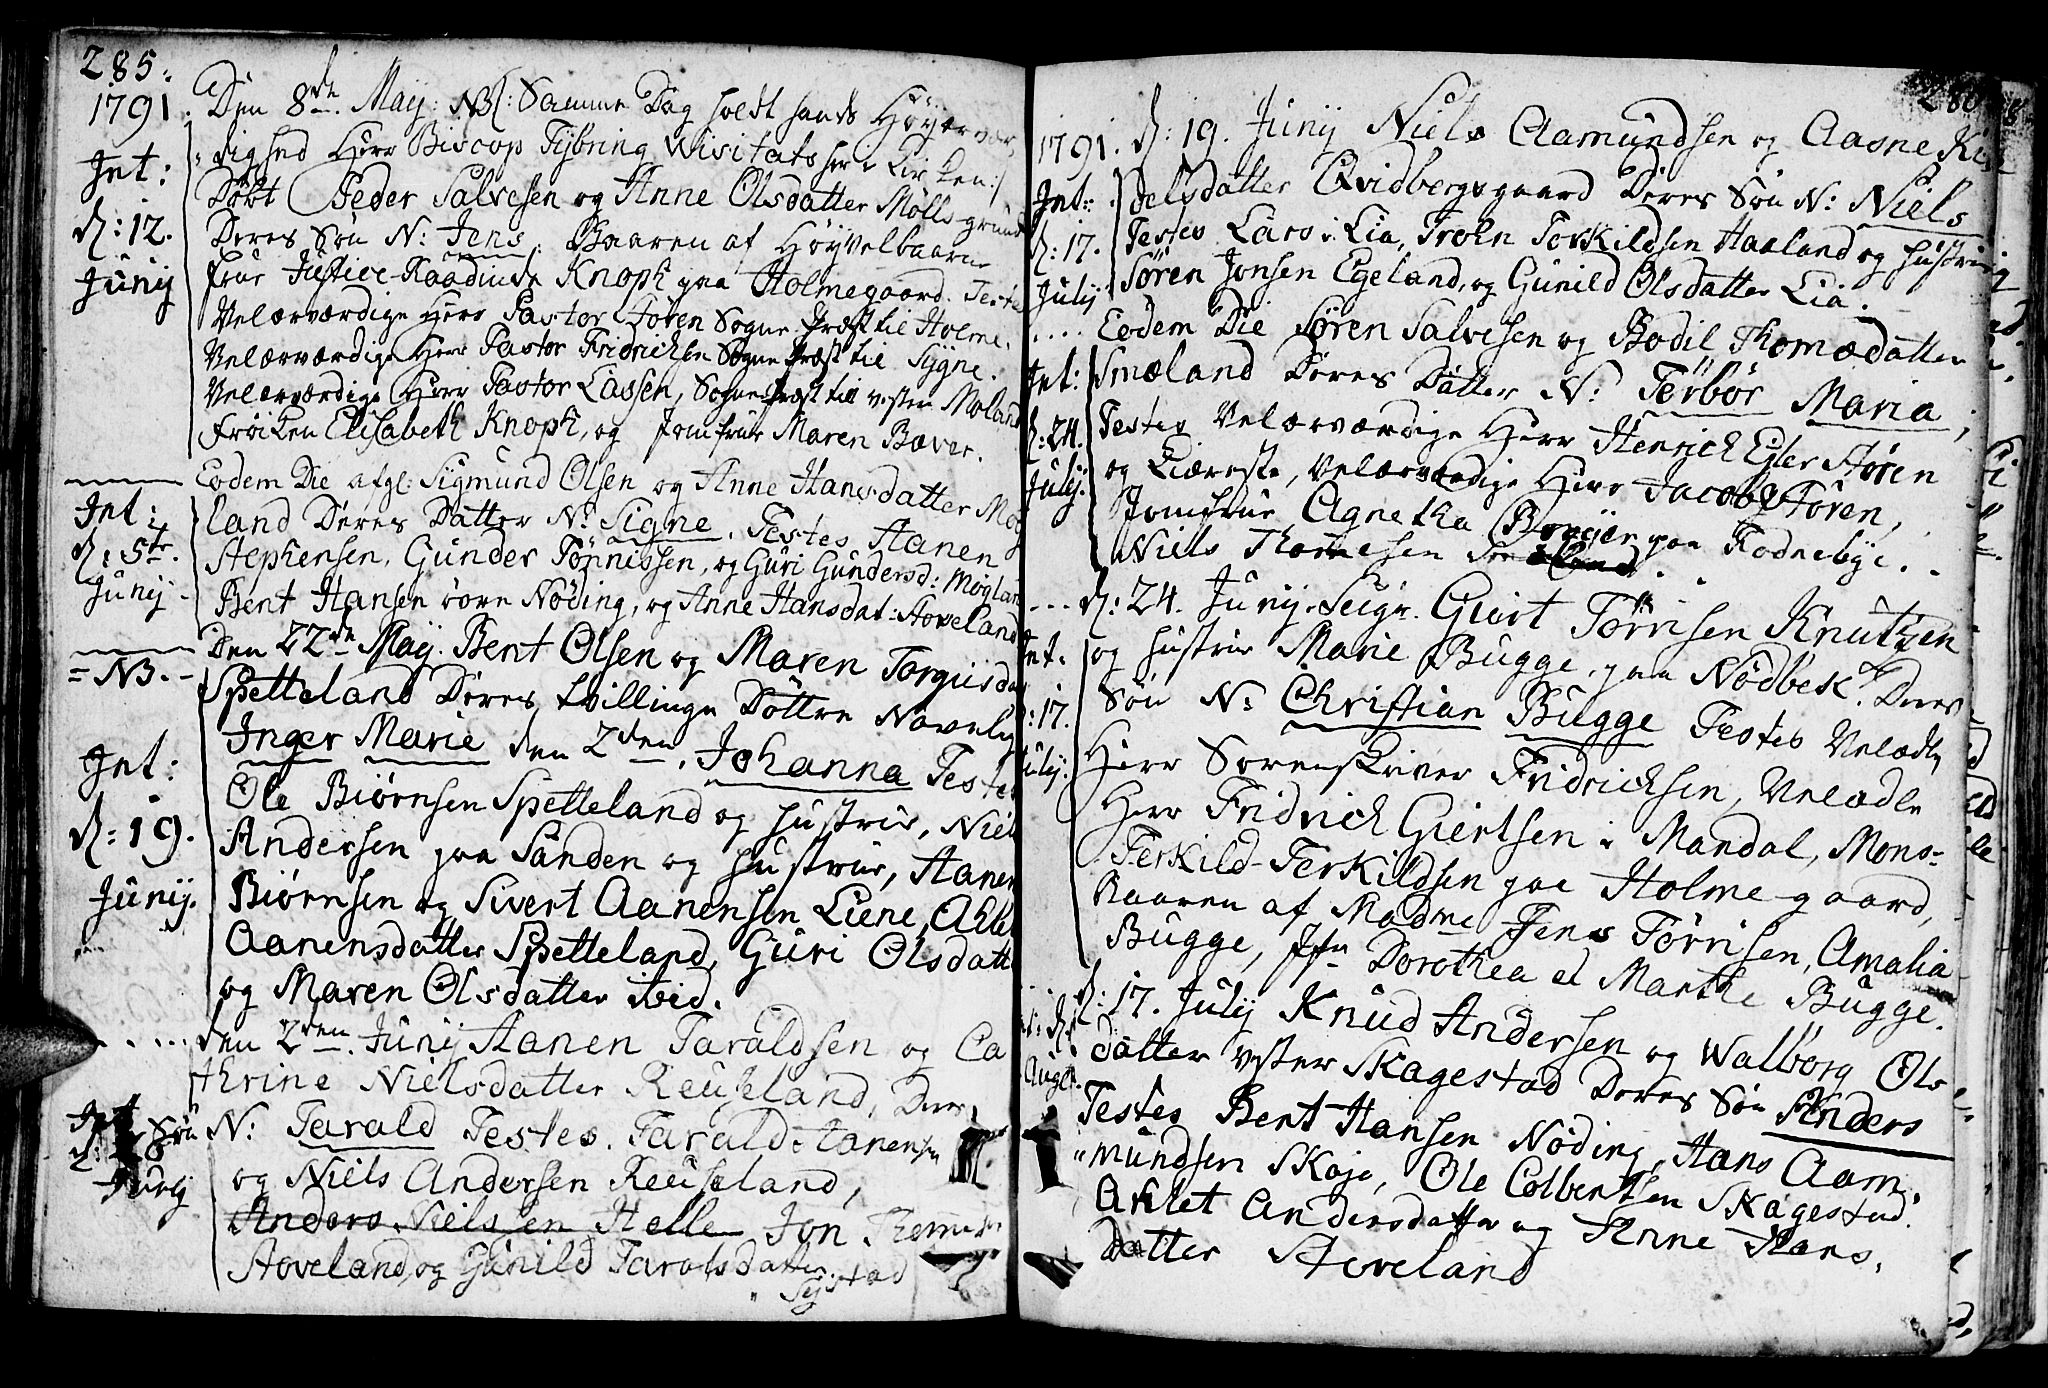 285.
1791.
Den 8de May. NB: Samme Dag holdt hands Höÿærvær,
dighed Herr Biscop Tÿbring Wisitats her i Kirken:/
Int:
d: 12.
Junij
Döbt Peder Salvesen og Anne Olsdatter Mölls-grund
Deres Sön N: Jens. Baaren af Höÿvelbaarne
frue Justice-Raadinde Knoph paa Holmegaard. Testes
Velærværdige Herr Pastor Stören Sogne Præst til Holme.
Velærværdige Herr Pastor Fridrichsen Sogne Præst til Sÿgne.
Velærværdige Herr Pastor Lassen, Sogne Præst til vester Moland
Fröiken Elisabeth Knoph, og Jomfrue Maren Bæver.
Eodem Die afgl: Sigmund Olsen og Anne Hansdatter Mög
Int:
d: 5te.
Junij
land Deres Datter N: Signe. Testes Aanen
Stephensen, Gunder Tönnissen, og Guri Gundersd: Mögland
Bent Hansen övre Nöding, og Anne Hansdat: Hoveland
Den 22de May. Bent Olsen og Maren Torgiusda
= NB. -
Spetteland Deres tvillinge Döttre Navnlig
Inger Marie den 2den, Johanna Testes
Int:
d: 19.
Junij.
Ole Biörnsen Spetteland og hustrue, Niels
Andersen paa Sanden og hustrue, Aanen
Biörnsen og Sivert Aanensen Liene, Ahlet
Aanensdatter Spetteland, Guri Olsdatt
og Maren Olsdatter ibid.
den 2den Junij Aanen Taraldsen og Ca
thrine Nielsdatter Reuseland, Deres
Int
Junij
Sön N: Tarald Testes. Tarald Aanensen
og Niels Andersen Reuseland,
Anders Nielsen Helle Jon Thomesen
Hoveland, og Gunild Taralsdatter
Sejstad
1791. d: 19. Junij Niels Aamundsen og Aasne Kit
Int:
d: 17.
Julij
delsdatter Qvidbergsgaard Deres Sön N: Niels
Testes Lars i Lia, Troen Torkildsen Haaland og hustrue
Sören Jonsen Egeland, og Gunild Olsdatter Lia.
Eodem Die Sören Salvesen og Bodil Thomædatter
Int:
d: 24.
Julij.
Smæland Deres Datter N: Terbör Maria,
Testes Velærværdige Herr Henrich Egler Stören
og Kiæreste, Velærværdige Herr Jacob Stören,
Jomfrue Agnetha paa Fodnebye.
Niels Thomesen
d: 24. Junij. Seigr. Giert Törrisen Knutzen
Int.
: 17.
Julij:
og hustrue Marie Bugge, paa Nödbek Deres
Sön N: Christian Bugge Testes Velædle
Herr Sorenskriver Fridrichsen, Velædle
Herr Fridrich Giertsen i Mandal, Mons:
Terkild Terkildsen paa Holme-gaard,
Baaren af Madme Jens Törrisen, Amalia
Bugge, Jfr Dorothea et Marthe Bugge.
d: 17. Julij Knud Andersen og Walborg Ols
Aug.
datter vester Skagestad Deres Sön Anders
Testes Bent Hansen Nöding, Hans Aam,
mundsen Skaje, Ole Colbentsen Skagestad.
Ahlet Andersdatter og Anne Hans,
Datter Hoveland